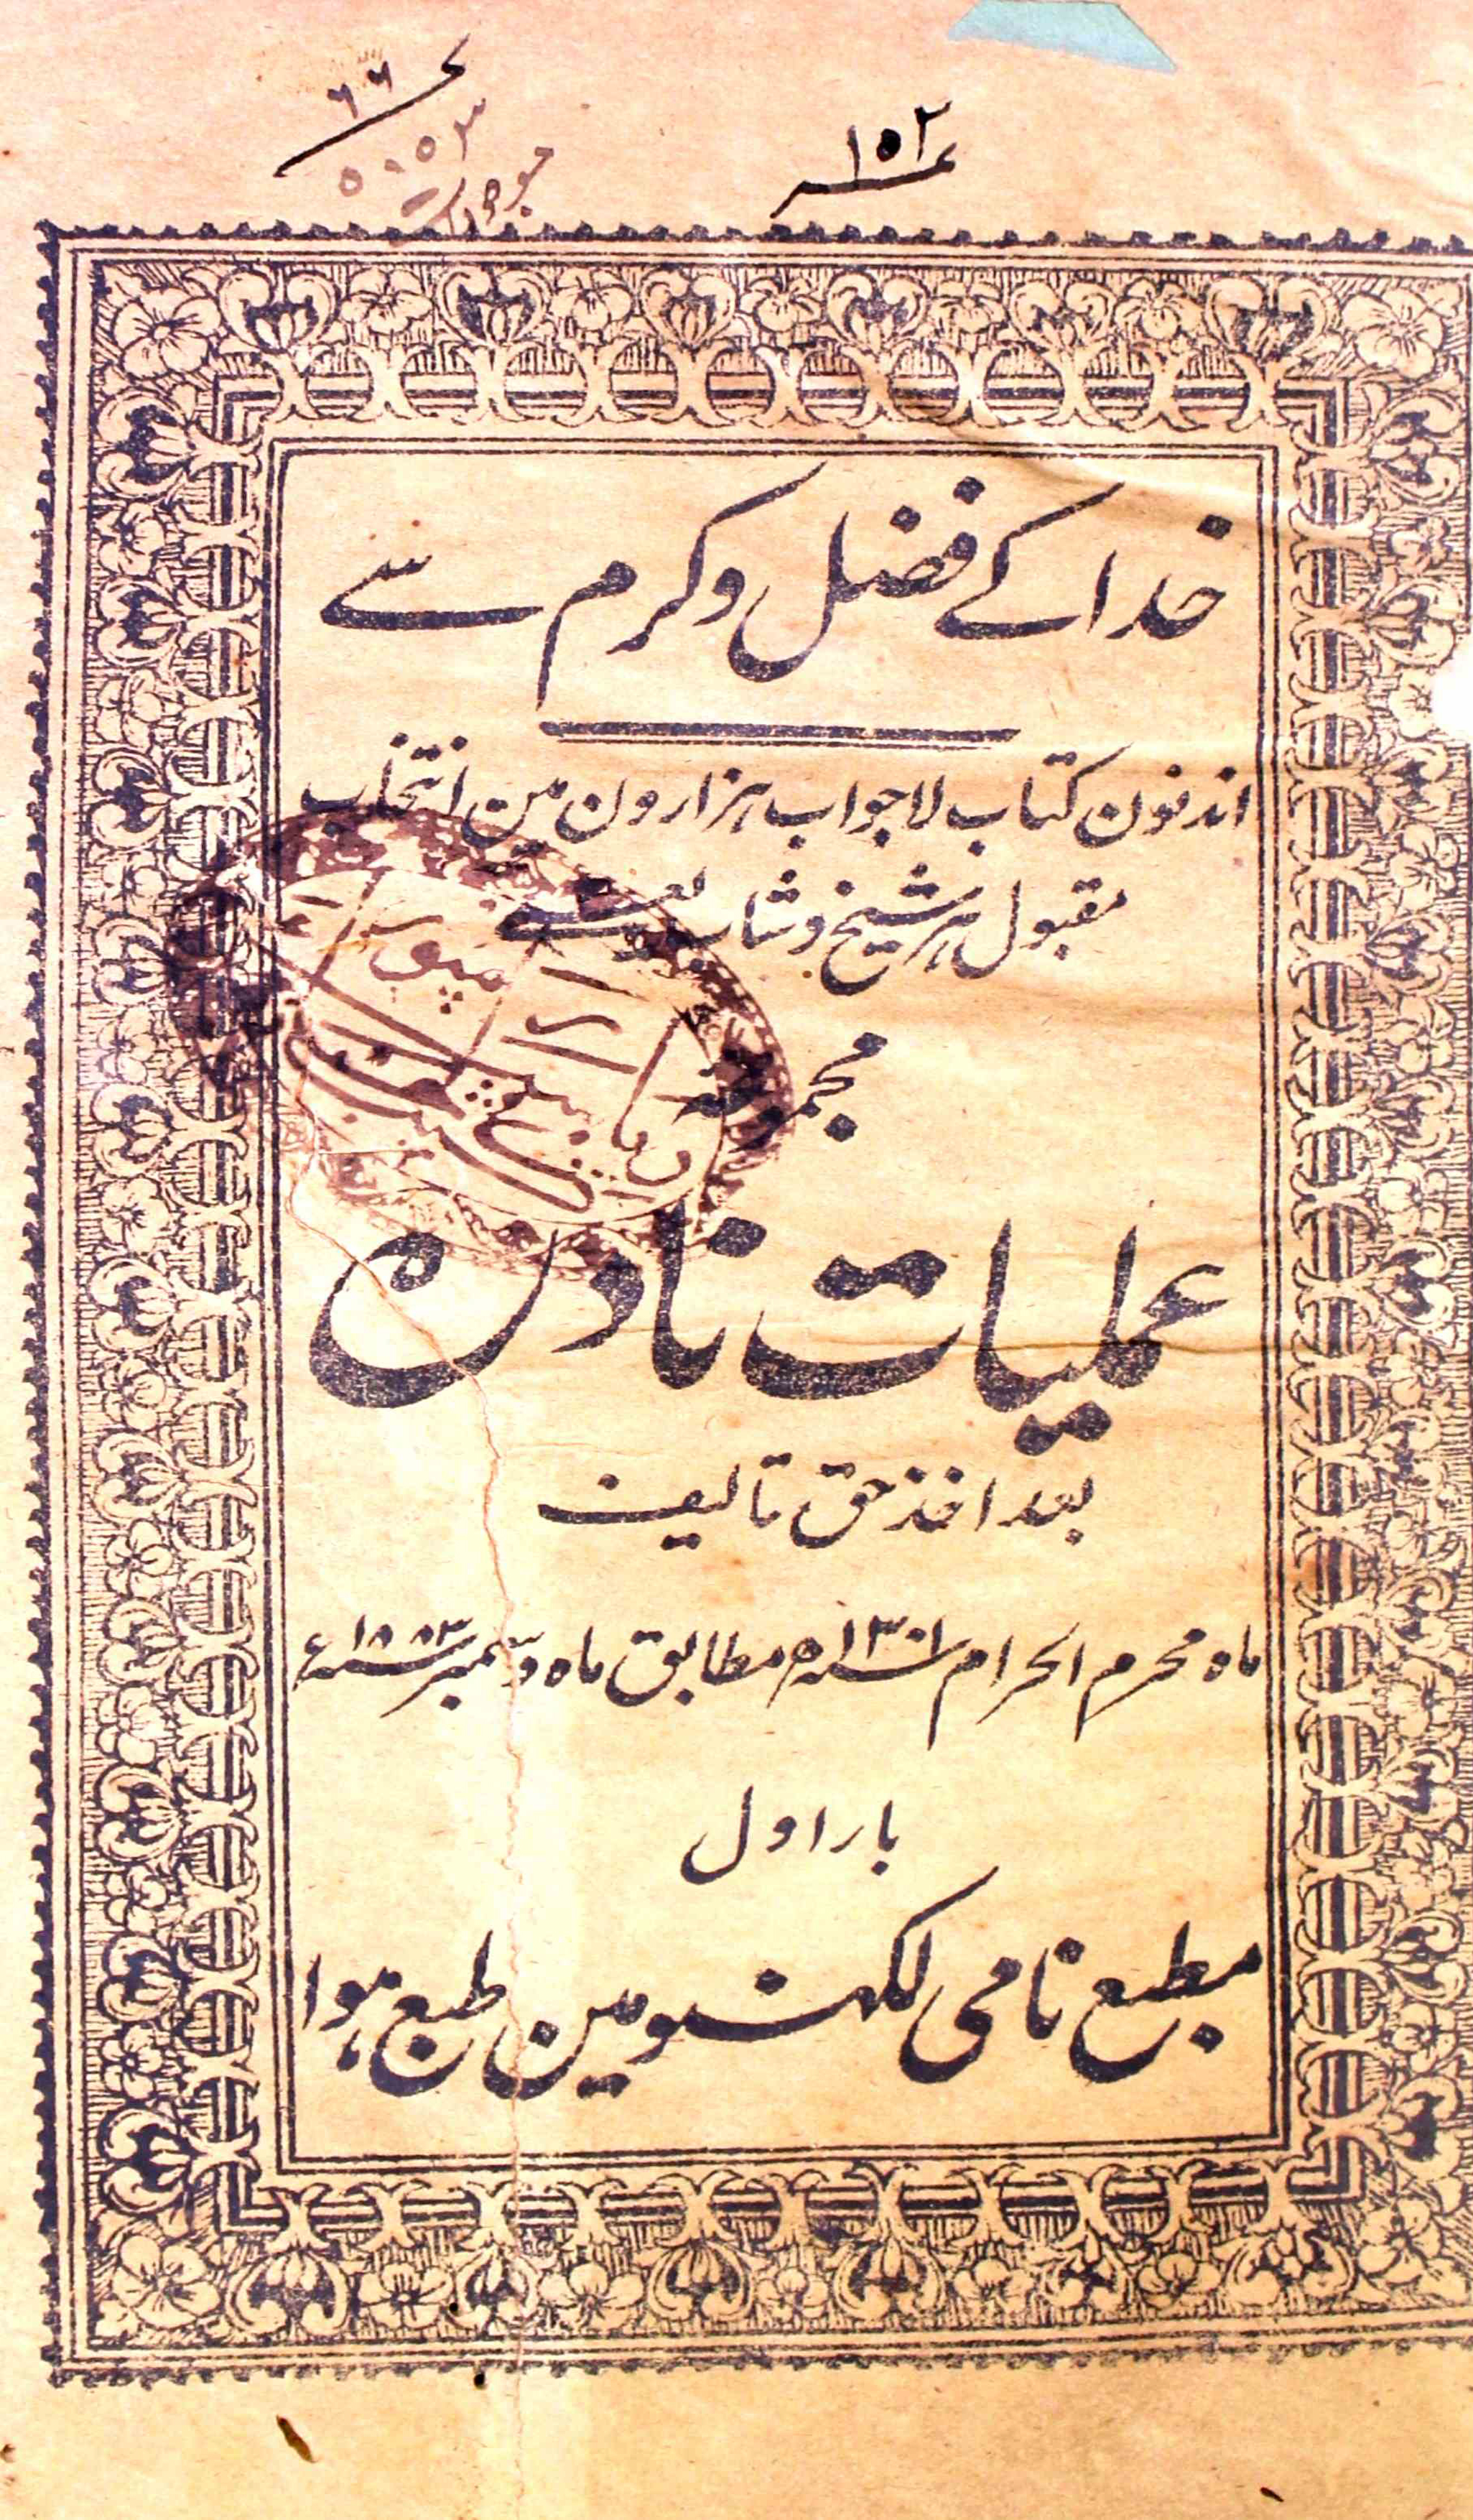 ۱۵۲
خدا کے فضل و کرم سے
اندنون کتاب لاجواب ہزارون مین انتخاب
مقبول ہر شیخ و شاب یعنے
مجموعہ
عملیات نادرہ
بعد اخذ حق تالیف
ماہ محرم الحرام سنہ ۱۳۰۱ھ مطابق ماہ دسمبر سنہ ۱۸۸۳ء
بار اول
مطبع نامی لکھنئو مین طبع ہوا